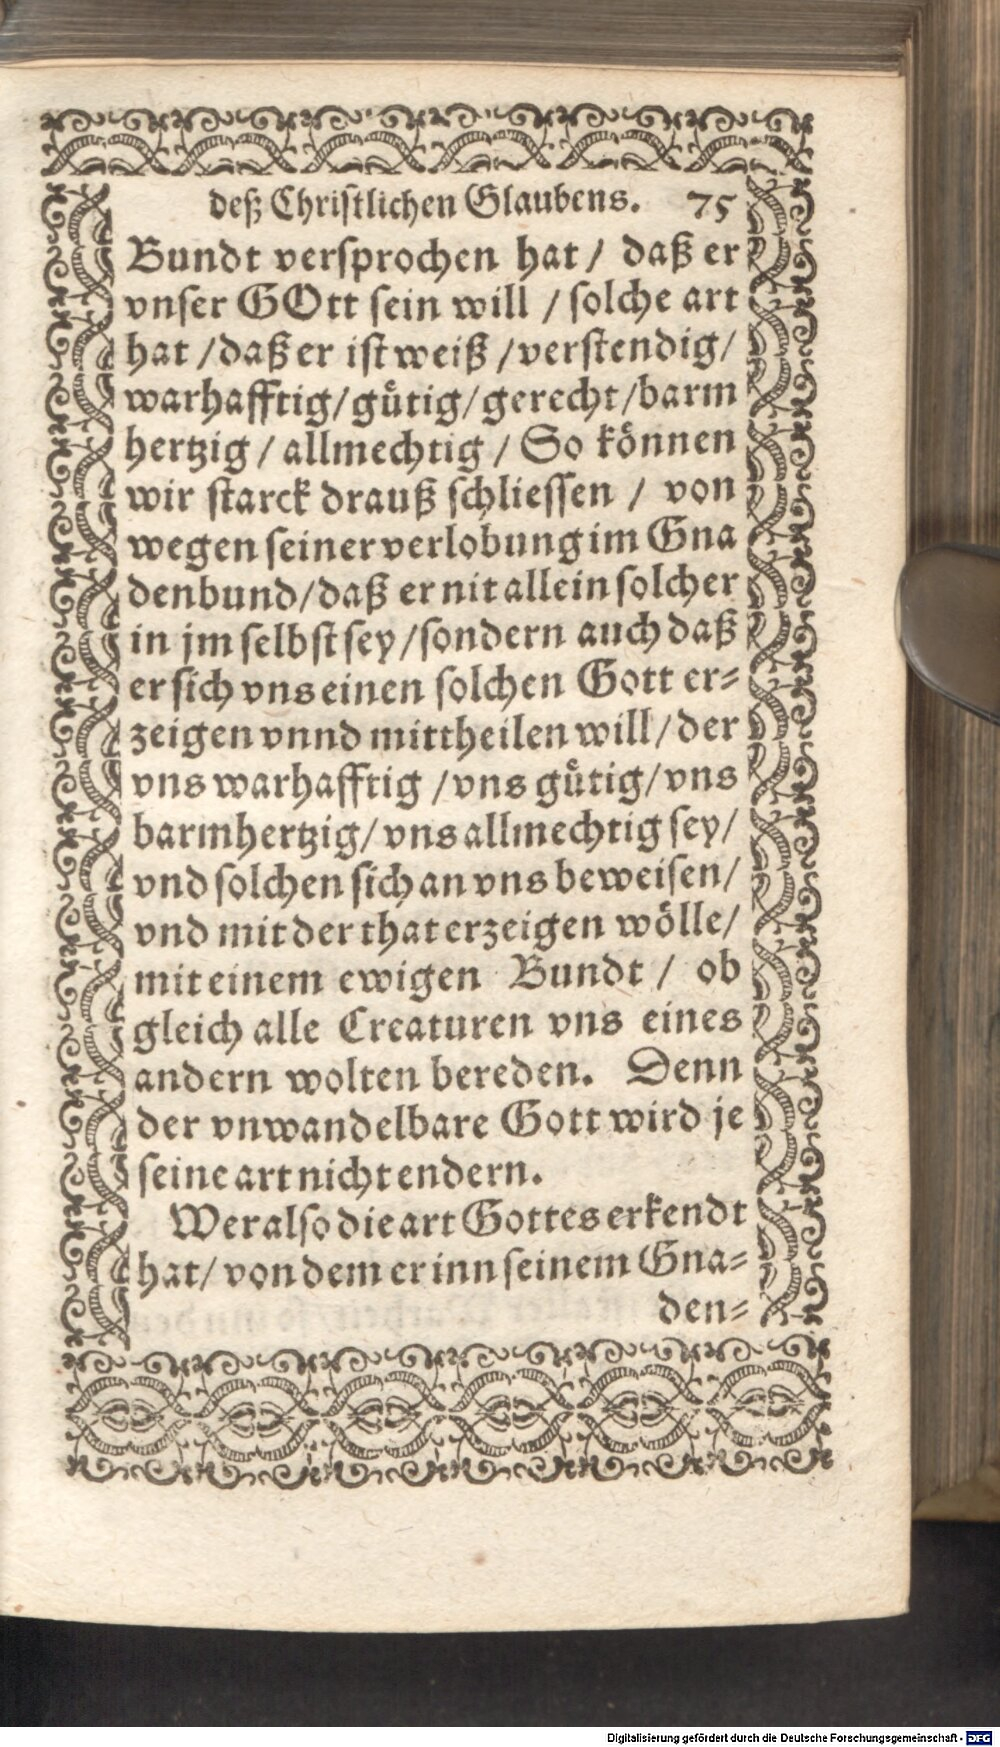 deß Christlichen Glaubens. 75
Bundt versprochen hat / daß er
vnser GOtt sein will / solche art
hat / daß er ist weiß / verstendig /
warhafftig / guͤtig / gerecht / barm
hertzig / allmechtig / So koͤnnen
wir starck drauß schliessen / von
wegen seiner verlobung im Gna
denbund / daß er nit allein solcher
in jm selbst sey / sondern auch daß
er sich vns einen solchen Gott er-
zeigen vnnd mittheilen will / der
vns warhafftig / vns guͤtig / vns
barmhertzig / vns allmechtig sey /
vnd solchen sich an vns beweisen /
vnd mit der that erzeigen woͤlle /
mit einem ewigen Bundt / ob
gleich alle Creaturen vns eines
andern wolten bereden. Denn
der vnwandelbare Gott wird je
seine art nicht endern.
Wer also die art Gottes erkendt
hat / von dem er inn seinem Gna-
den-
Digitalisierung gefördert durch die Deutsche Forschungsgemeinschaft - DFG